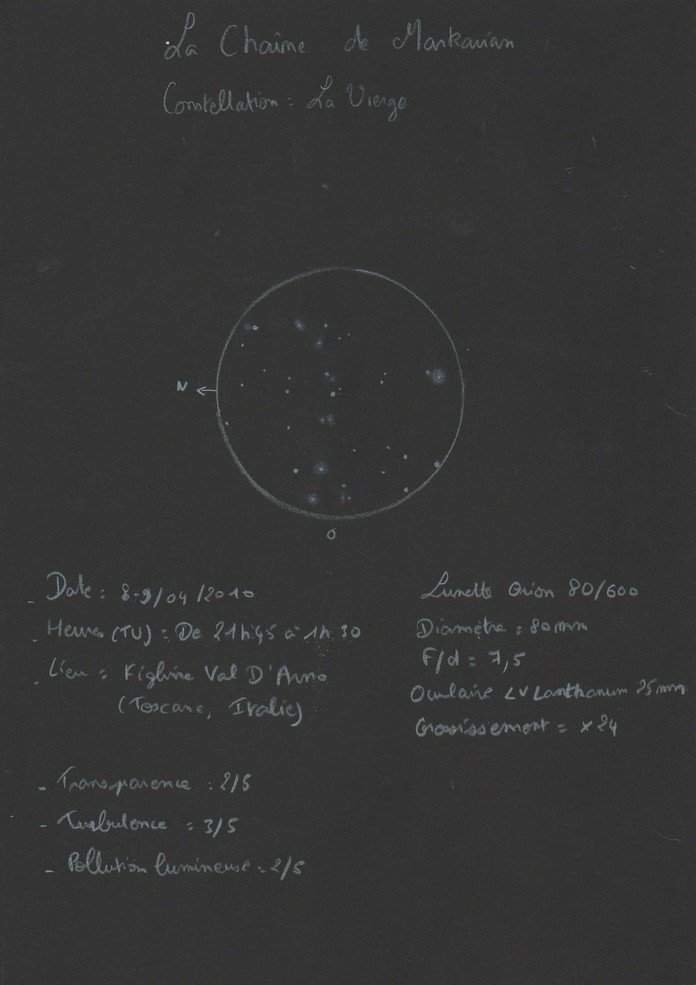 La Chaîne de Markarian
Constellation : La Vierge
N
O
- Date : 8-9/04/2010
- Heures (TU) : De 21h45 à 1h30
- Lieu : Figline Val D'Arno
(Toscane, Italie)
Lunette Orion 80/600
Diamètre : 80mm
F/d = 7,5
Oculaire LV Lanthanum 25mm
Grossissement = x24
- Transparence : 2/5
- Turbulence : 3/5
- Pollution lumineuse : 2/5